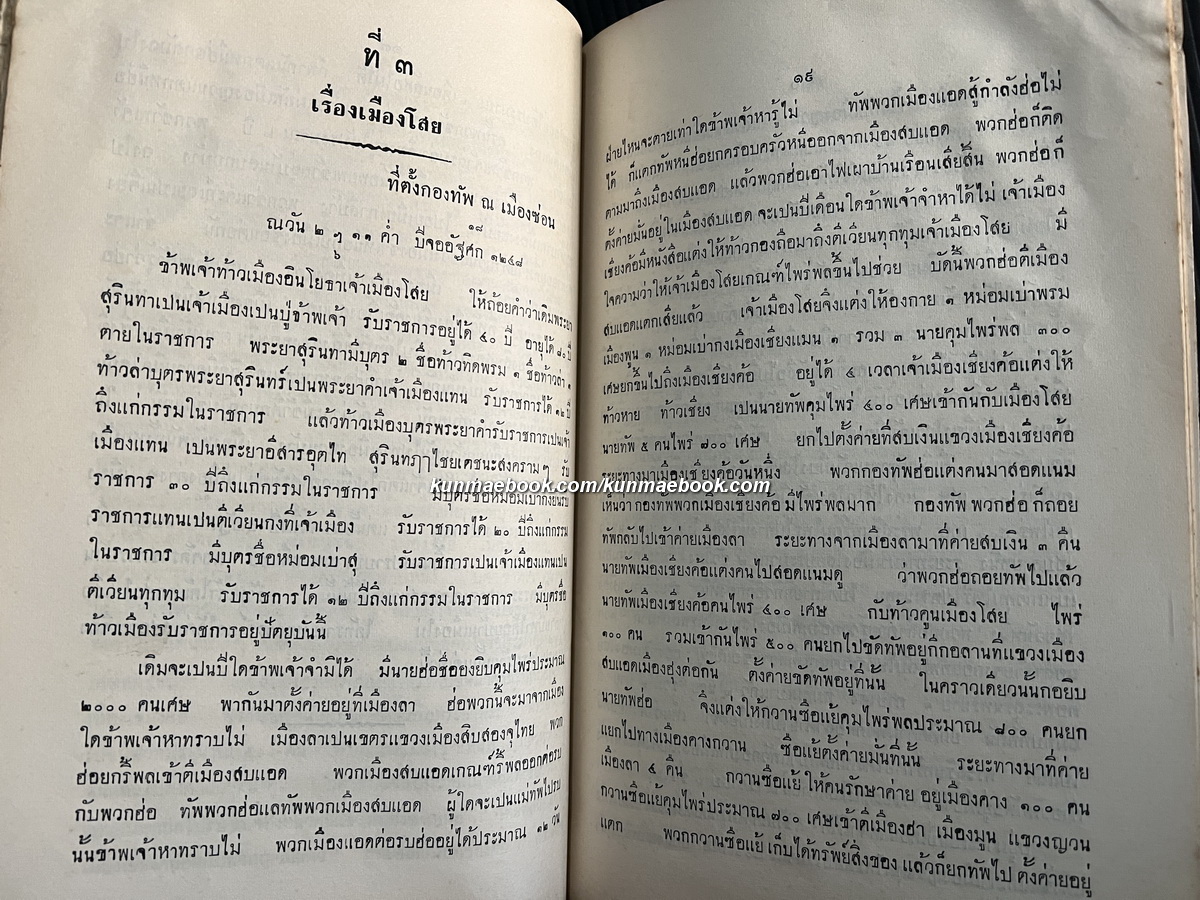 ที่ ๓
เรื่องเมืองโสย
ที่ตั้งกองทัพ ณ เมืองซ่อน
๑๘
ณวัน ๒ ๆ ๑๑ ค่ำ ปีจออัฐศก ๑๒๔๘
๖
ข้าพเจ้าท้าวเมืองอินโยธาเจ้าเมืองโสย ให้ถ้อยคำว่าเดิมพระยา
สุรินทาเปนเจ้าเมืองเปนปู่ข้าพเจ้า รับราชการอยู่ได้ ๔๐ ปี อายุได้ ๘๐ ปี
ตายในราชการ พระยาสุรินทามีบุตร ๒ ชื่อท้าวทิดพรม ๑ ชื่อท้าวล่า ๑
ท้าวล่าบุตรพระยาสุรินทร์เปนพระยาคำเจ้าเมืองแทน รับราชการได้ ๑๒ ปี
ถึงแก่กรรมในราชการ แล้วท้าวเมืองบุตรพระยาคำรับราชการเปนเจ้า
เมืองแทน เปนพระยาอีสารอุตไท สุรินทฦๅไชยเดชนะสงครามๆ รับ
ราชการ ๓๐ ปีถึงแก่กรรมในราชการ มีบุตรชื่อหม่อมเบ่ากงยืนรับ
ราชการแทนเปนตีเวียนกงที่เจ้าเมือง รับราชการได้ ๒๐ ปีถึงแก่กรรม
ในราชการ มีบุตรชื่อหม่อมเบ่าสุ รับราชการเปนเจ้าเมืองแทนเปน
ตีเวียนทุกทุม รับราชการได้ ๑๒ ปีถึงแก่กรรมในราชการ มีบุตรชื่อ
ท้าวเมืองรับราชการอยู่ปัตยุบันนี้
เดิมจะเปนปีใดข้าพเจ้าจำมิได้ มีนายฮ่อชื่อองยิบคุมไพร่ประมาณ
๒๐๐๐ คนเศษ พากันมาตั้งค่ายอยู่ที่เมืองลา ฮ่อพวกนี้จะมาจากเมือง
ใดข้าพเจ้าหาทราบไม่ เมืองลาเปนเขตรแขวงเมืองสิบสองจุไทย พวก
ฮ่อยกรี้พลเข้าตีเมืองสบแอด พวกเมืองสบแอดเกณฑ์รี้พลออกต่อรบ
กับพวกฮ่อ ทัพพวกฮ่อแลทัพพวกเมืองสบแอด ผู้ใดจะเปนแม่ทัพไปรบ
นั้นข้าพเจ้าหาทราบไม่ พวกเมืองแอดต่อรบฮ่ออยู่ได้ประมาณ ๑๒ วัน
๑๙
ฝ่ายไหนจะตายเท่าใดข้าพเจ้าหารู้ไม่ ทัพพวกเมืองแอดสู้กำลังฮ่อไม่
ได้ ก็แตกทัพหนีฮ่อยกครอบครัวหนีออกจากเมืองสบแอด พวกฮ่อก็คิด
ตามมาถึงเมืองสบแอด แล้วพวกฮ่อเอาไฟเผาบ้านเรือนเสียสิ้น พวกฮ่อก็
ตั้งค่ายมั่นอยู่ในเมืองสบแอด จะเปนปีเดือนใดข้าพเจ้าจำหาได้ไม่ เจ้าเมือง
เชียงค้อมีหนังสือแต่งให้ท้าวกองถือมาถึงตีเวียนทุกทุมเจ้าเมืองโสย มี
ใจความว่าให้เจ้าเมืองโสยเกณฑ์ไพร่พลขึ้นไปช่วย บัดนี้พวกฮ่อตีเมือง
สบแอดแตกเสียแล้ว เจ้าเมืองโสยจึงแต่งให้องกาย ๑ หม่อมเบ่าพรม
เมืองพูน ๑ หม่อมเบ่ากงเมืองเชียงแมน ๑ รวม ๓ นายคุมไพร่พล ๓๐๐
เศษยกขึ้นไปถึงเมืองเชียงค้อ อยู่ได้ ๔ เวลาเจ้าเมืองเชียงค้อแต่งให้
ท้าวหาย ท้าวเชียง เปนนายทัพคุมไพร่ ๔๐๐ เศษเข้ากันกับเมืองโสย
นายทัพ ๕ คนไพร่ ๗๐๐ เศษ ยกไปตั้งค่ายที่สบเงินแขวงเมืองเชียงค้อ
ระยะทางมาเมืองเชียงค้อวันหนึ่ง พวกกองทัพฮ่อแต่งคนมาสอดแนม
เห็นว่ากองทัพพวกเมืองเชียงค้อ มีไพร่พลมาก กองทัพ พวกฮ่อ ก็ถอย
ทัพกลับไปเข้าค่ายเมืองลา ระยะทางจากเมืองลามาที่ค่ายสบเงิน ๓ คืน
นายทัพเมืองเชียงค้อแต่งคนไปสอดแนมดู ว่าพวกฮ่อถอยทัพไปแล้ว
นายทัพเมืองเชียงค้อคนไพร่ ๔๐๐ เศษ กับท้าวคูนเมืองโสย ไพร่
๑๐๐ คน รวมเข้ากันไพร่ ๕๐๐ คนยกไปขัดทัพอยู่กี่กอลานที่แขวงเมือง
สบแอดเมืองฮุงต่อกัน ตั้งค่ายขัดทัพอยู่ที่นั้น ในคราวเดียวนั้นกอยิบ
นายทัพฮ่อ จึงแต่งให้กวานซือแย้คุมไพร่พลประมาณ ๘๐๐ คนยก
แยกไปทางเมืองคางกวาน ซือแย้ตั้งค่ายมั่นที่นั้น ระยะทางมาที่ค่าย
เมืองลา ๔ คืน กวานซือแย้ ให้คนรักษาค่าย อยู่เมืองคาง ๑๐๐ คน
กวานซือแย้คุมไพร่ประมาณ ๗๐๐ เศษเข้าตีเมืองฮำ เมืองมูน แขวงญวน
แตก พวกกวานซือแย้ เก็บได้ทรัพย์สิ่งของ แล้วก็ยกทัพไป ตั้งค่ายอยู่
kunmaebook.com/kunmaebook.com